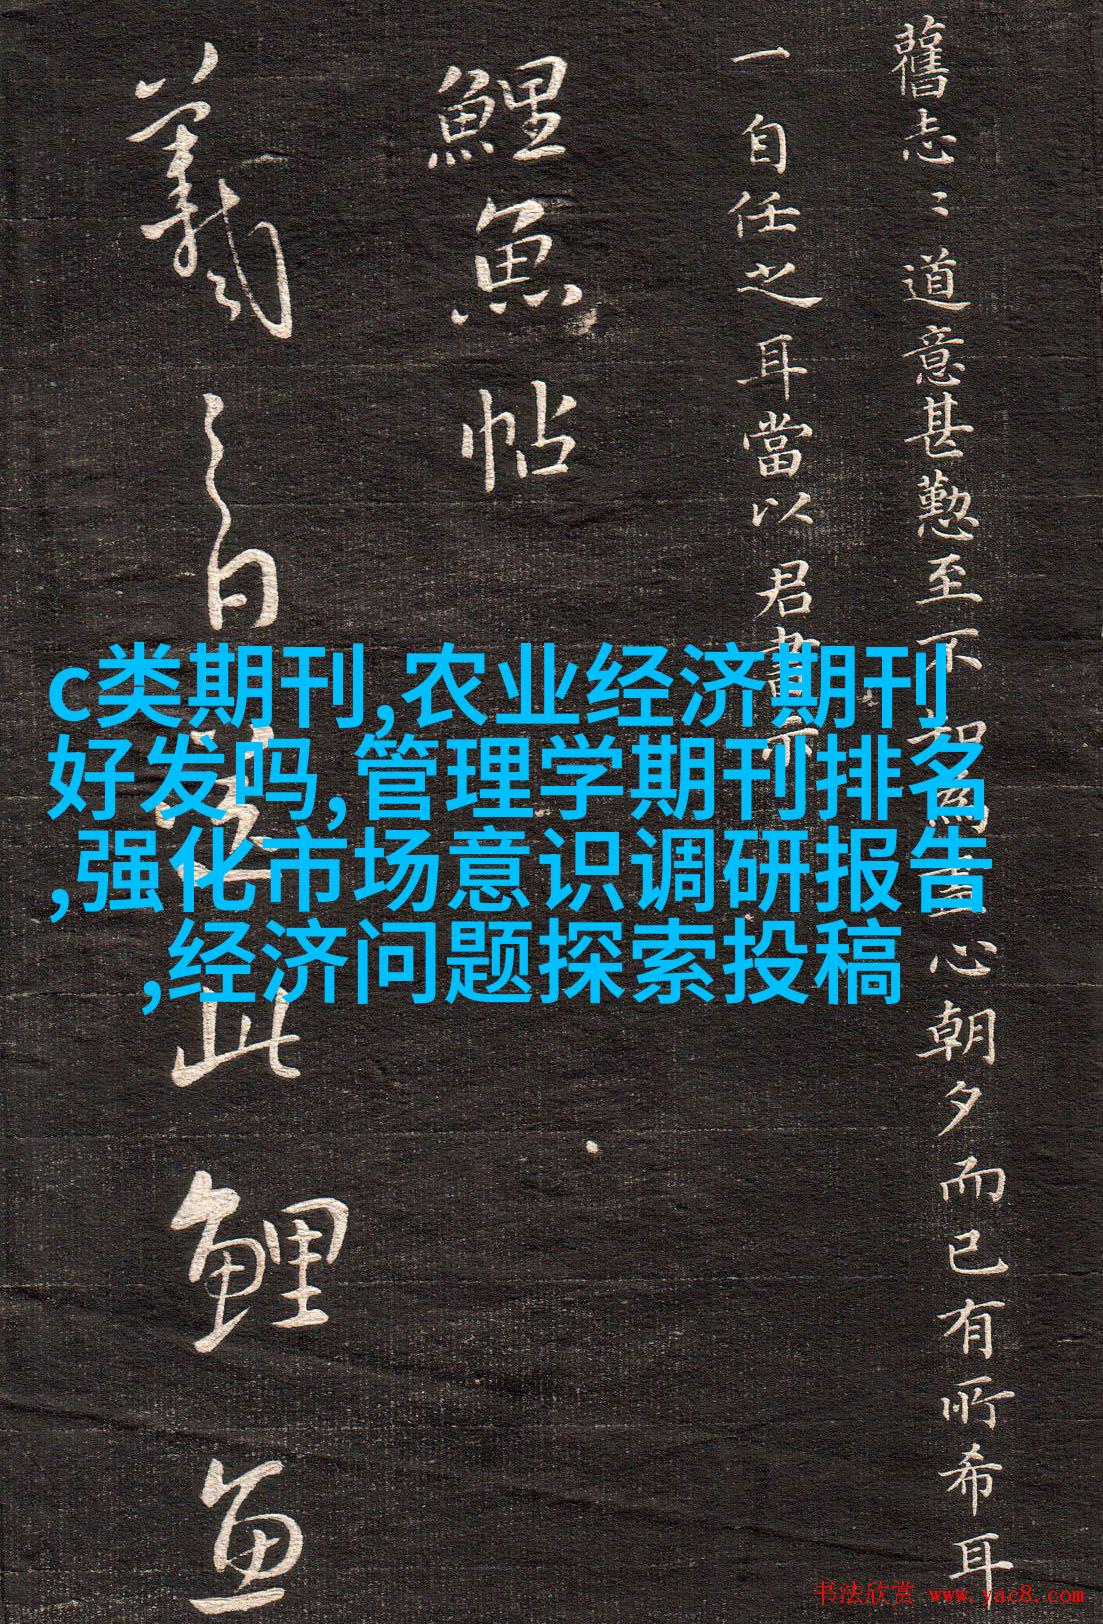 舊志〻道意甚懃至不知為心朝夕而已有所希耳
一自任之耳當以君書亦
鯉魚帖
羲之白送此鯉魚
c类期刊,农业经济期刊
好发吗,管理学期刊排名
,强化市场意识调研报告
,经济问题探索投稿
书法欣赏 www.yac8.com